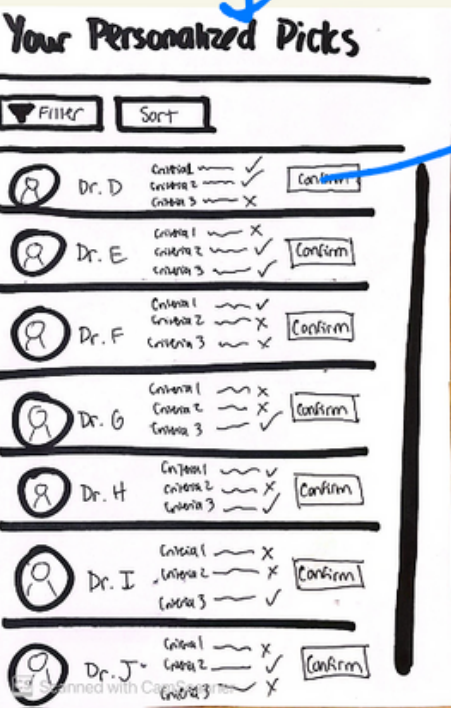 Your Personalized Picks
Filter
Sort
Dr. D
Criteria 1 ✓
Criteria 2 ✓
Criteria 3 ✗
Confirm
Dr. E
Criteria 1 ✗
Criteria 2 ✓
Criteria 3 ✓
Confirm
Dr. F
Criteria 1 ✓
Criteria 2 ✗
Criteria 3 ✗
Confirm
Dr. G
Criteria 1 ✗
Criteria 2 ✗
Criteria 3 ✓
Confirm
Dr. H
Criteria 1 ✓
Criteria 2 ✗
Criteria 3 ✓
Confirm
Dr. I
Criteria 1 ✗
Criteria 2 ✗
Criteria 3 ✓
Confirm
Dr. J
Criteria 1 ✗
Criteria 2 ✓
Criteria 3 ✗
Confirm
Scanned with CamScanner